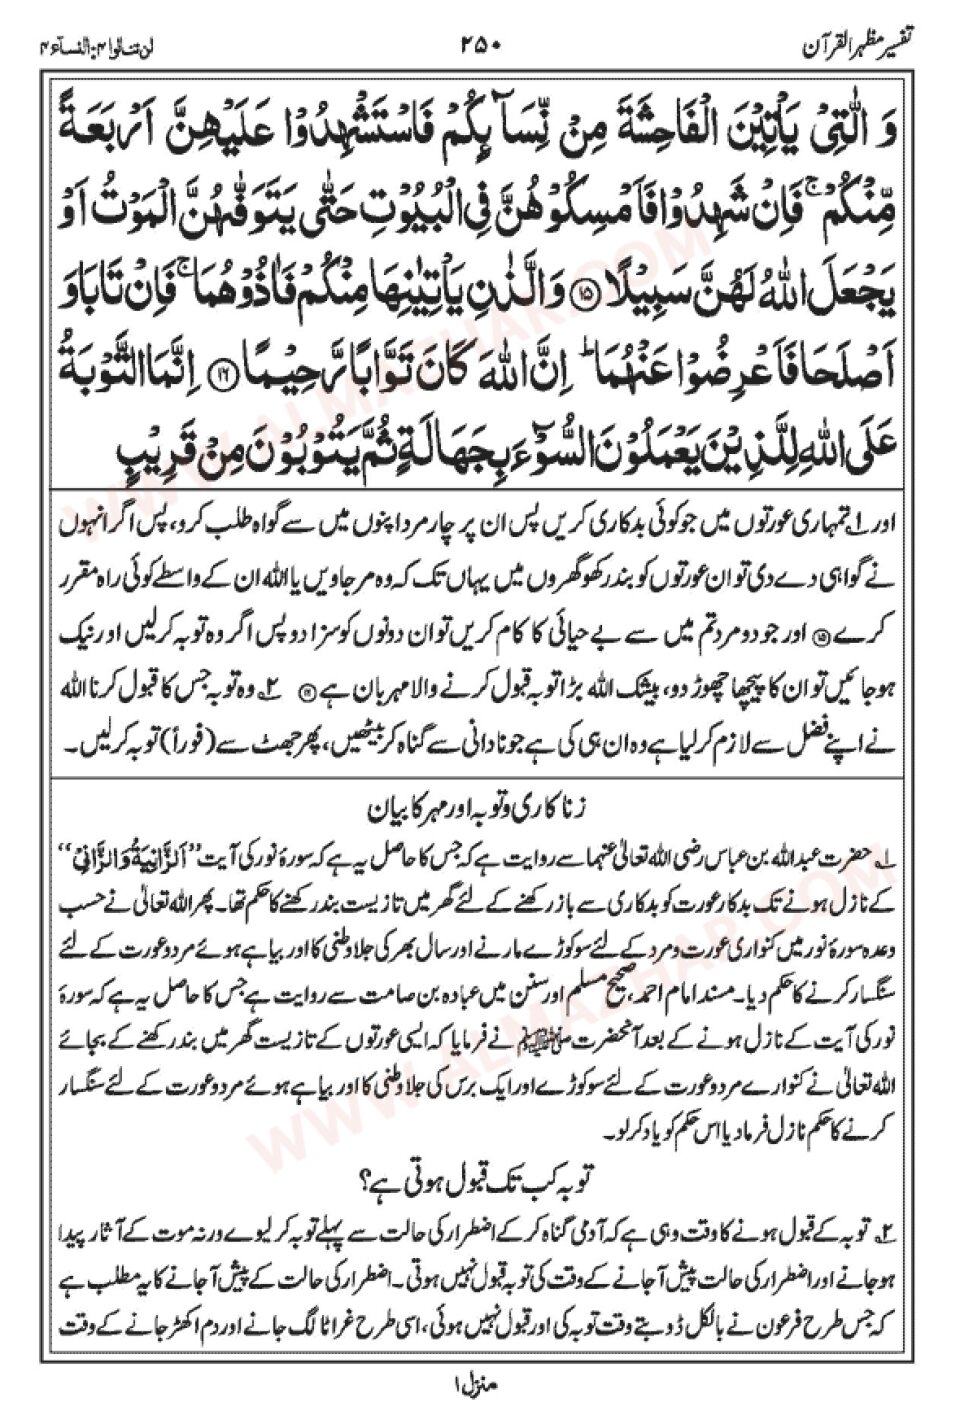 تفسیر مظہر القرآن
۲۵۰
لن تنالوا ۴: النساء ۴
وَ الّٰتِیۡ یَاۡتِیۡنَ الۡفَاحِشَۃَ مِنۡ نِّسَآئِکُمۡ فَاسۡتَشۡہِدُوۡا عَلَیۡہِنَّ اَرۡبَعَۃً
مِّنۡکُمۡ ۚ فَاِنۡ شَہِدُوۡا فَاَمۡسِکُوۡہُنَّ فِی الۡبُیُوۡتِ حَتّٰی یَتَوَفّٰہُنَّ الۡمَوۡتُ اَوۡ
یَجۡعَلَ اللّٰہُ لَہُنَّ سَبِیۡلًا ﴿۱۵﴾ وَالَّذٰنِ یَاۡتِیٰنِہَا مِنۡکُمۡ فَاٰذُوۡہُمَا ۚ فَاِنۡ تَابَا وَ
اَصۡلَحَا فَاَعۡرِضُوۡا عَنۡہُمَا ؕ اِنَّ اللّٰہَ کَانَ تَوَّابًا رَّحِیۡمًا ﴿۱۶﴾ اِنَّمَا التَّوۡبَۃُ
عَلَی اللّٰہِ لِلَّذِیۡنَ یَعۡمَلُوۡنَ السُّوۡٓءَ بِجَہَالَۃٍ ثُمَّ یَتُوۡبُوۡنَ مِنۡ قَرِیۡبٍ
اور ۱ تمہاری عورتوں میں جو کوئی بدکاری کریں پس ان پر چار مرد اپنوں میں سے گواہ طلب کرو، پس اگر انہوں
نے گواہی دے دی تو ان عورتوں کو بند رکھو گھروں میں یہاں تک کہ وہ مر جاویں یا اللہ ان کے واسطے کوئی راہ مقرر
کرے ﴿۱۵﴾ اور جو دو مرد تم میں سے بے حیائی کا کام کریں تو ان دونوں کو سزا دو پس اگر وہ توبہ کرلیں اور نیک
ہو جائیں تو ان کا پیچھا چھوڑ دو، بیشک اللہ بڑا توبہ قبول کرنے والا مہربان ہے ﴿۱۶﴾ ۲ وہ توبہ جس کا قبول کرنا اللہ
نے اپنے فضل سے لازم کرلیا ہے وہ ان ہی کی ہے جو نادانی سے گناہ کر بیٹھیں، پھر جھٹ سے (فوراً) توبہ کرلیں۔
زنا کاری و توبہ اور مہر کا بیان
۱ حضرت عبد اللہ بن عباس رضی اللہ تعالیٰ عنہما سے روایت ہے کہ جس کا حاصل یہ ہے کہ سورۂ نور کی آیت ”اَلزَّانِیَۃُ وَالزَّانِیْ“
کے نازل ہونے تک بدکار عورت کو بدکاری سے باز رکھنے کے لئے گھر میں تازیست بند رکھنے کا حکم تھا۔ پھر اللہ تعالیٰ نے حسب
وعدہ سورۂ نور میں کنواری عورت و مرد کے لئے سو کوڑے مارنے اور سال بھر کی جلا وطنی کا اور بیاہے ہوئے مرد و عورت کے لئے
سنگسار کرنے کا حکم دیا۔ مسند امام احمد، صحیح مسلم اور سنن میں عبادہ بن صامت سے روایت ہے جس کا حاصل یہ ہے کہ سورۂ
نور کی آیت کے نازل ہونے کے بعد آنحضرت ﷺ نے فرمایا کہ ایسی عورتوں کے تازیست گھر میں بند رکھنے کے بجائے
اللہ تعالیٰ نے کنوارے مرد و عورت کے لئے سو کوڑے اور ایک برس کی جلا وطنی کا اور بیاہے ہوئے مرد و عورت کے لئے سنگسار
کرنے کا حکم نازل فرما دیا اس حکم کو یاد کرلو۔
توبہ کب تک قبول ہوتی ہے؟
۲ توبہ کے قبول ہونے کا وقت وہی ہے کہ آدمی گناہ کر کے اضطرار کی حالت سے پہلے توبہ کر لیوے ورنہ موت کے آثار پیدا
ہو جانے اور اضطرار کی حالت پیش آ جانے کے وقت کی توبہ قبول نہیں ہوتی۔ اضطرار کی حالت کے پیش آ جانے کا یہ مطلب ہے
کہ جس طرح فرعون نے بالکل ڈوبتے وقت توبہ کی اور قبول نہیں ہوئی، اسی طرح غراٹا لگ جانے اور دم اکھڑ جانے کے وقت
منزل ۱
WWW.ALMAZHAR.COM
WWW.ALMAZHAR.COM